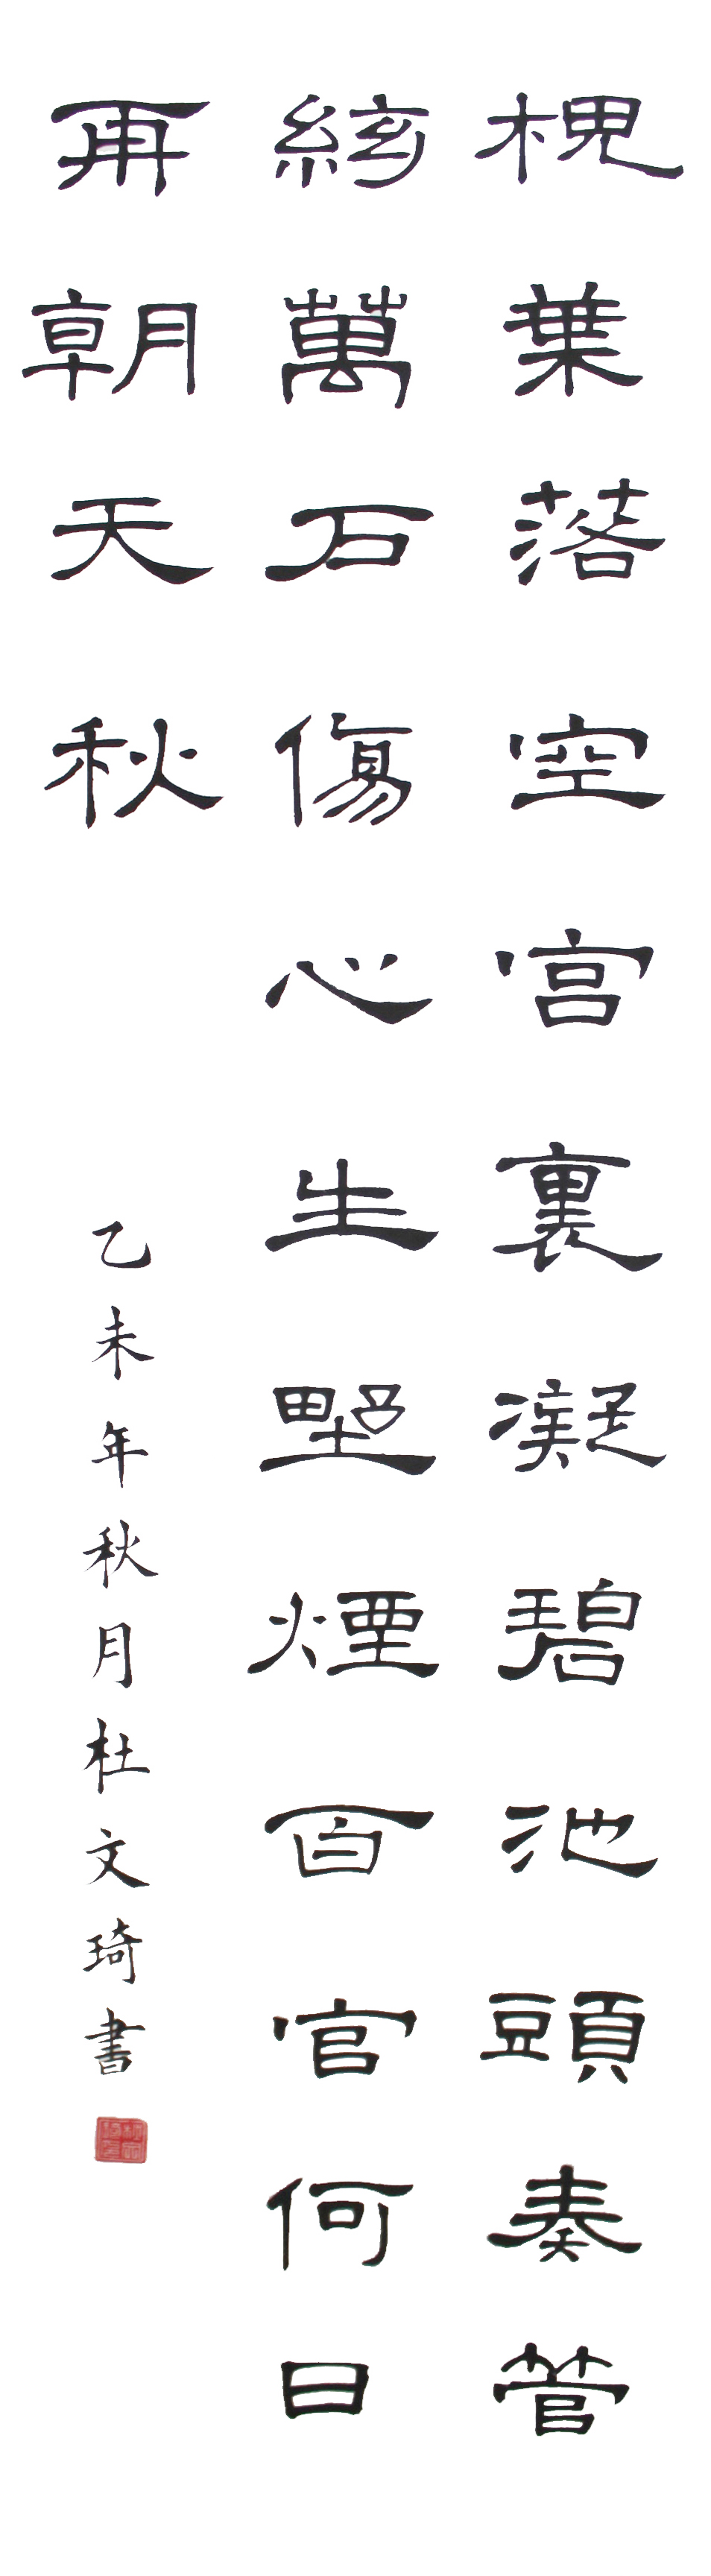 槐葉落空宮裏凝碧池頭奏管
絃萬石傷心生野煙百官何日
再朝天秋
乙未年秋月杜文琦書